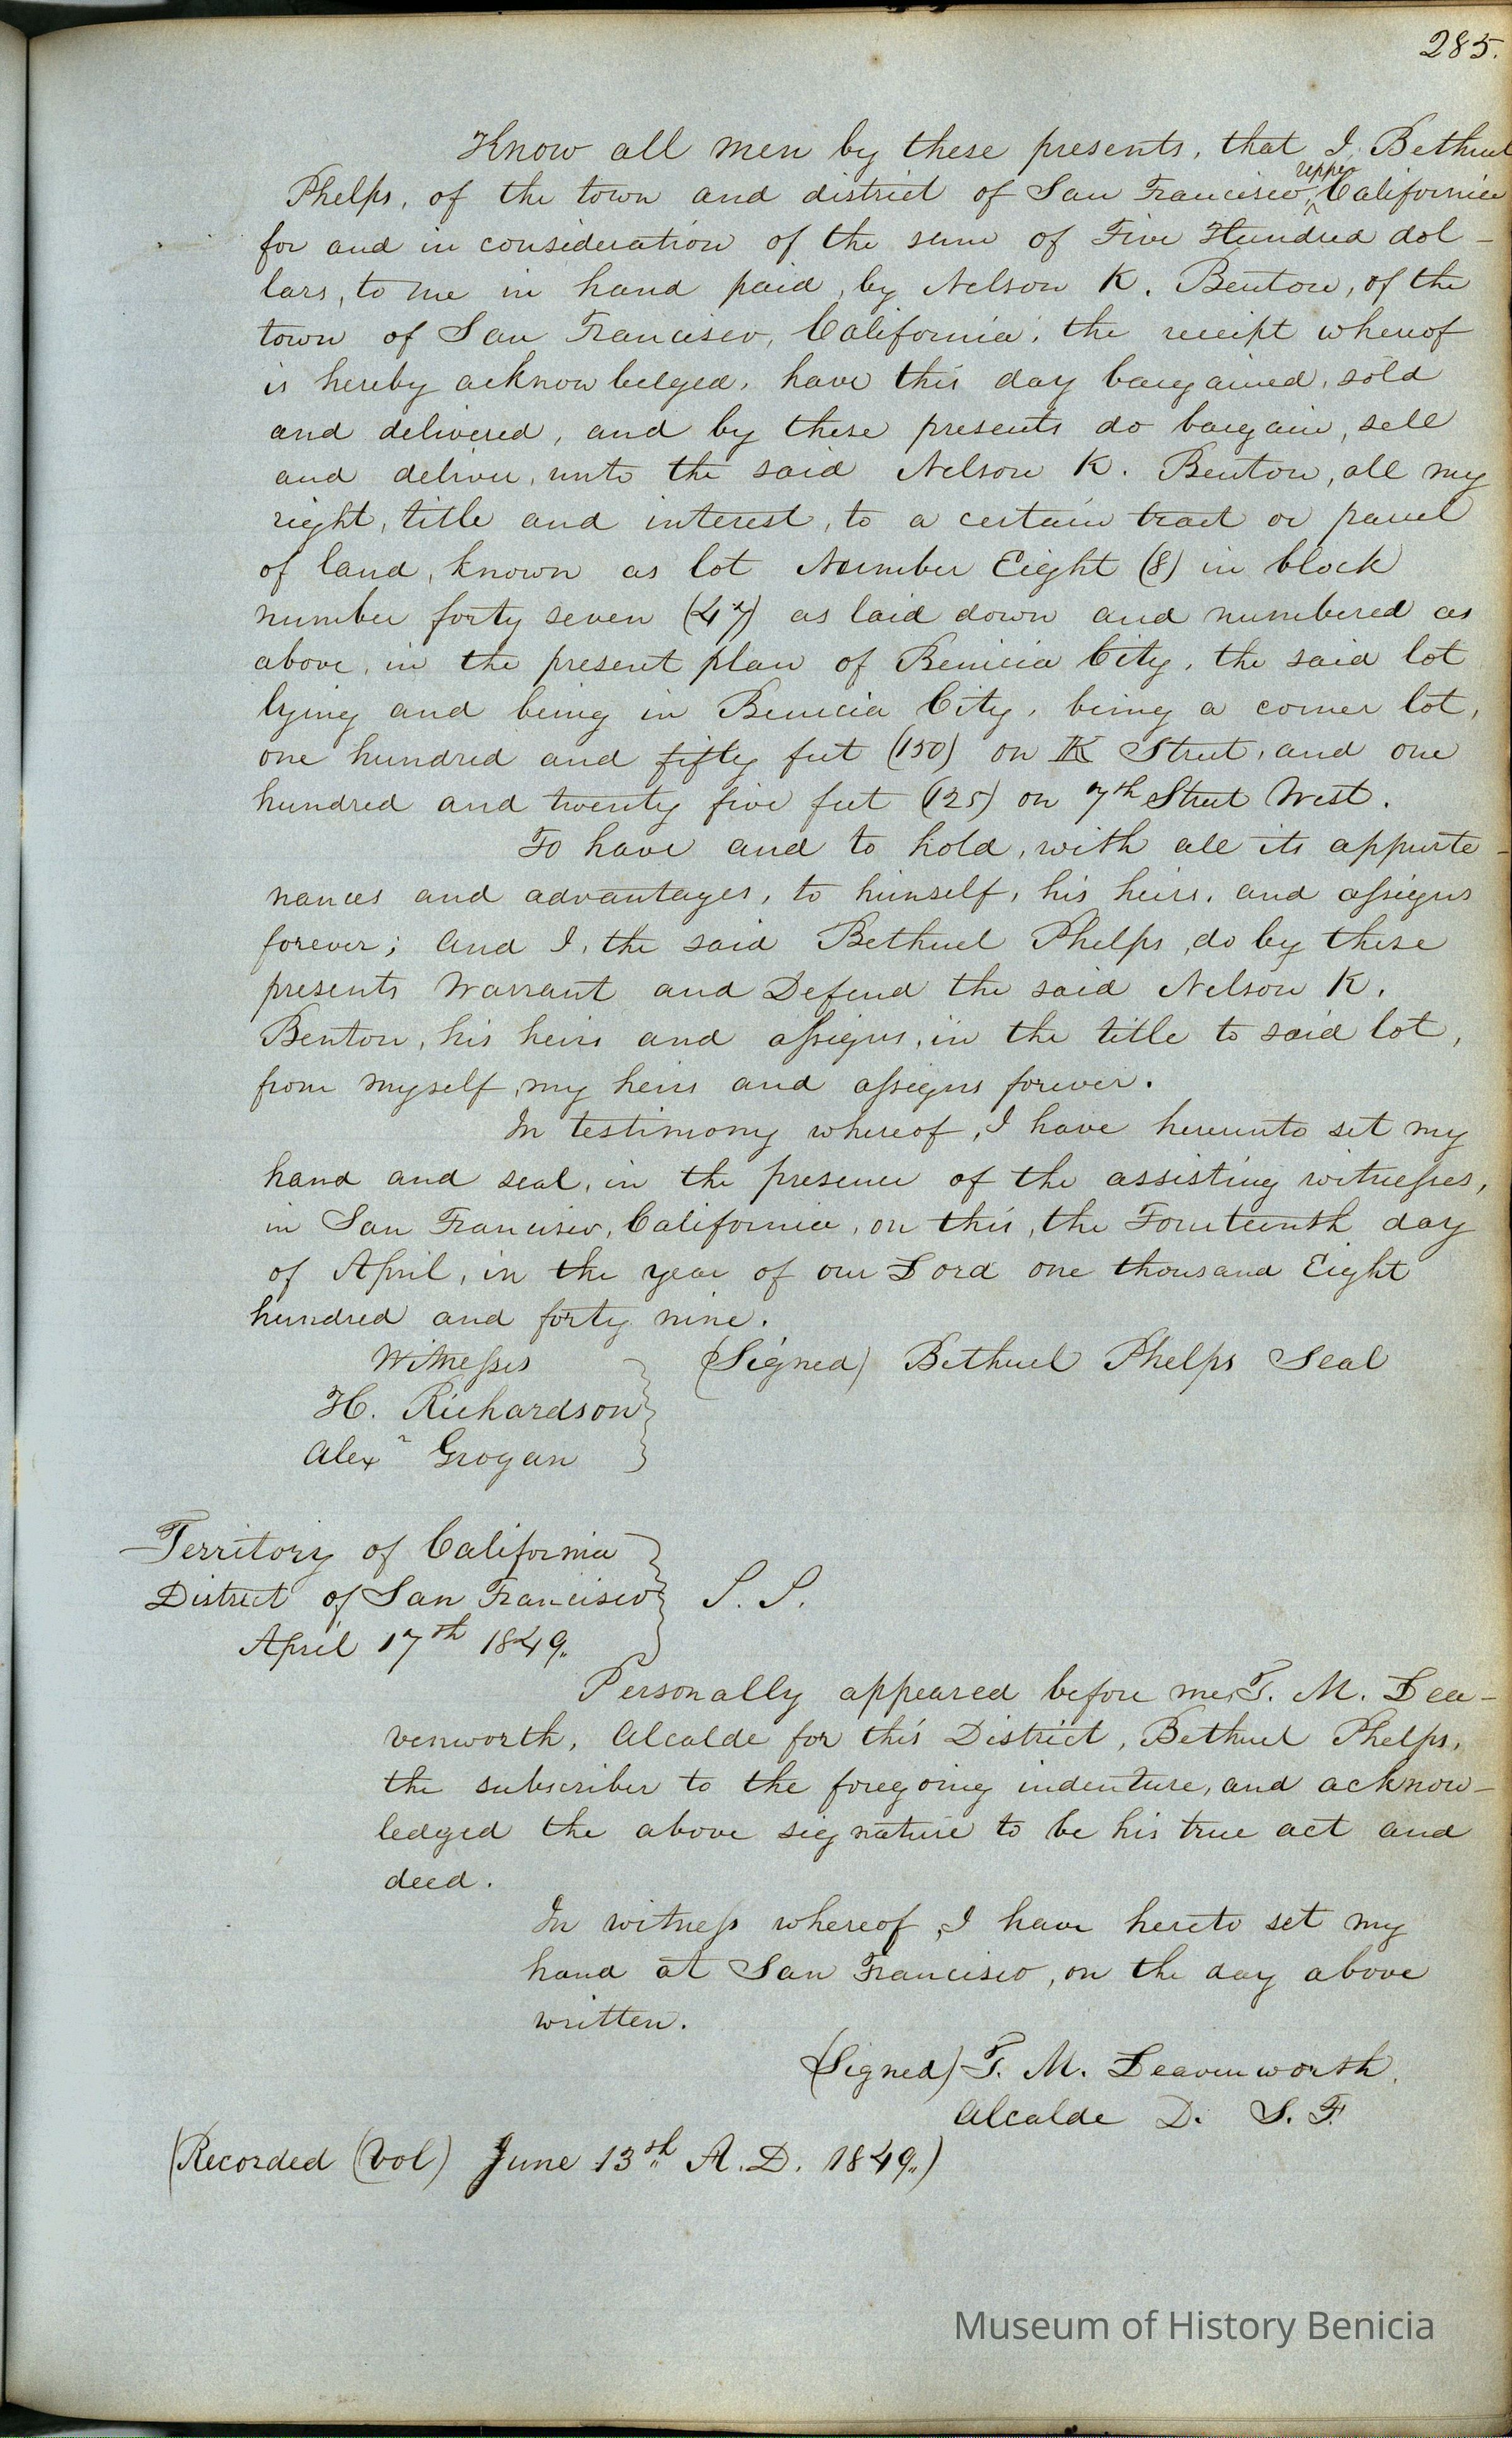 285.
Know all men by these presents, that I, Bethuel
Phelps, of the town and district of San Francisco, upper California
for and in consideration of the sum of Five Hundred dol-
lars, to me in hand paid, by Nelson K. Benton, of the
town of San Francisco, California, the receipt whereof
is hereby acknowledged, have this day bargained, sold
and delivered, and by these presents do bargain, sell
and deliver, unto the said Nelson K. Benton, all my
right, title and interest, to a certain tract or parcel
of land, known as lot Number Eight (8) in block
number forty seven (47) as laid down and numbered as
above, in the present plan of Benicia City, the said lot
lying and being in Benicia City, being a corner lot,
one hundred and fifty feet (150) on K Street, and one
hundred and twenty five feet (125) on 7th Street West.
To have and to hold, with all its appurte-
nances and advantages, to himself, his heirs, and assigns
forever; and I, the said Bethuel Phelps, do by these
presents Warrant and Defend the said Nelson K.
Benton, his heirs and assigns, in the title to said lot,
from myself, my heirs and assigns forever.
In testimony whereof, I have hereunto set my
hand and seal, in the presence of the assisting witnesses,
in San Francisco, California, on this, the Fourteenth day
of April, in the year of our Lord one thousand Eight
hundred and forty nine.
Witnesses (Signed) Bethuel Phelps Seal
H. Richardson
Alexr Grogan
Territory of California
District of San Francisco S. S.
April 17th 1849.
Personally appeared before me, T. M. Lea-
venworth, Alcalde for this District, Bethuel Phelps,
the subscriber to the foregoing indenture, and acknow-
ledged the above signature to be his true act and
deed.
In witness whereof, I have hereto set my
hand at San Francisco, on the day above
written.
(Signed) T. M. Leavenworth.
Alcalde D. S. F.
(Recorded (Vol) June 13th A. D. 1849.)
Museum of History Benicia